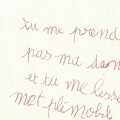 tu me prend
pas ma dam
et tu me lesse
met plimobile